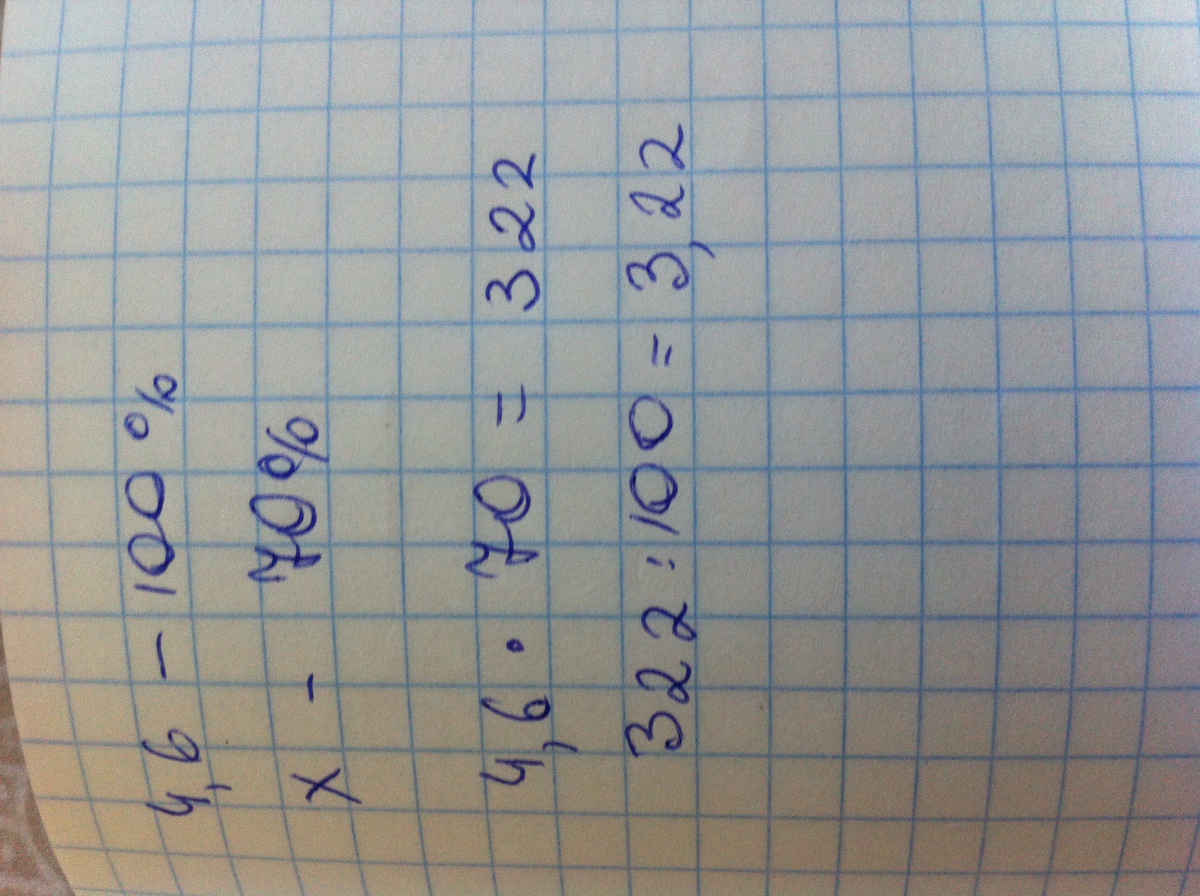 4,6 - 100%
x - 70%
4,6 · 70 = 322
322 : 100 = 3,22